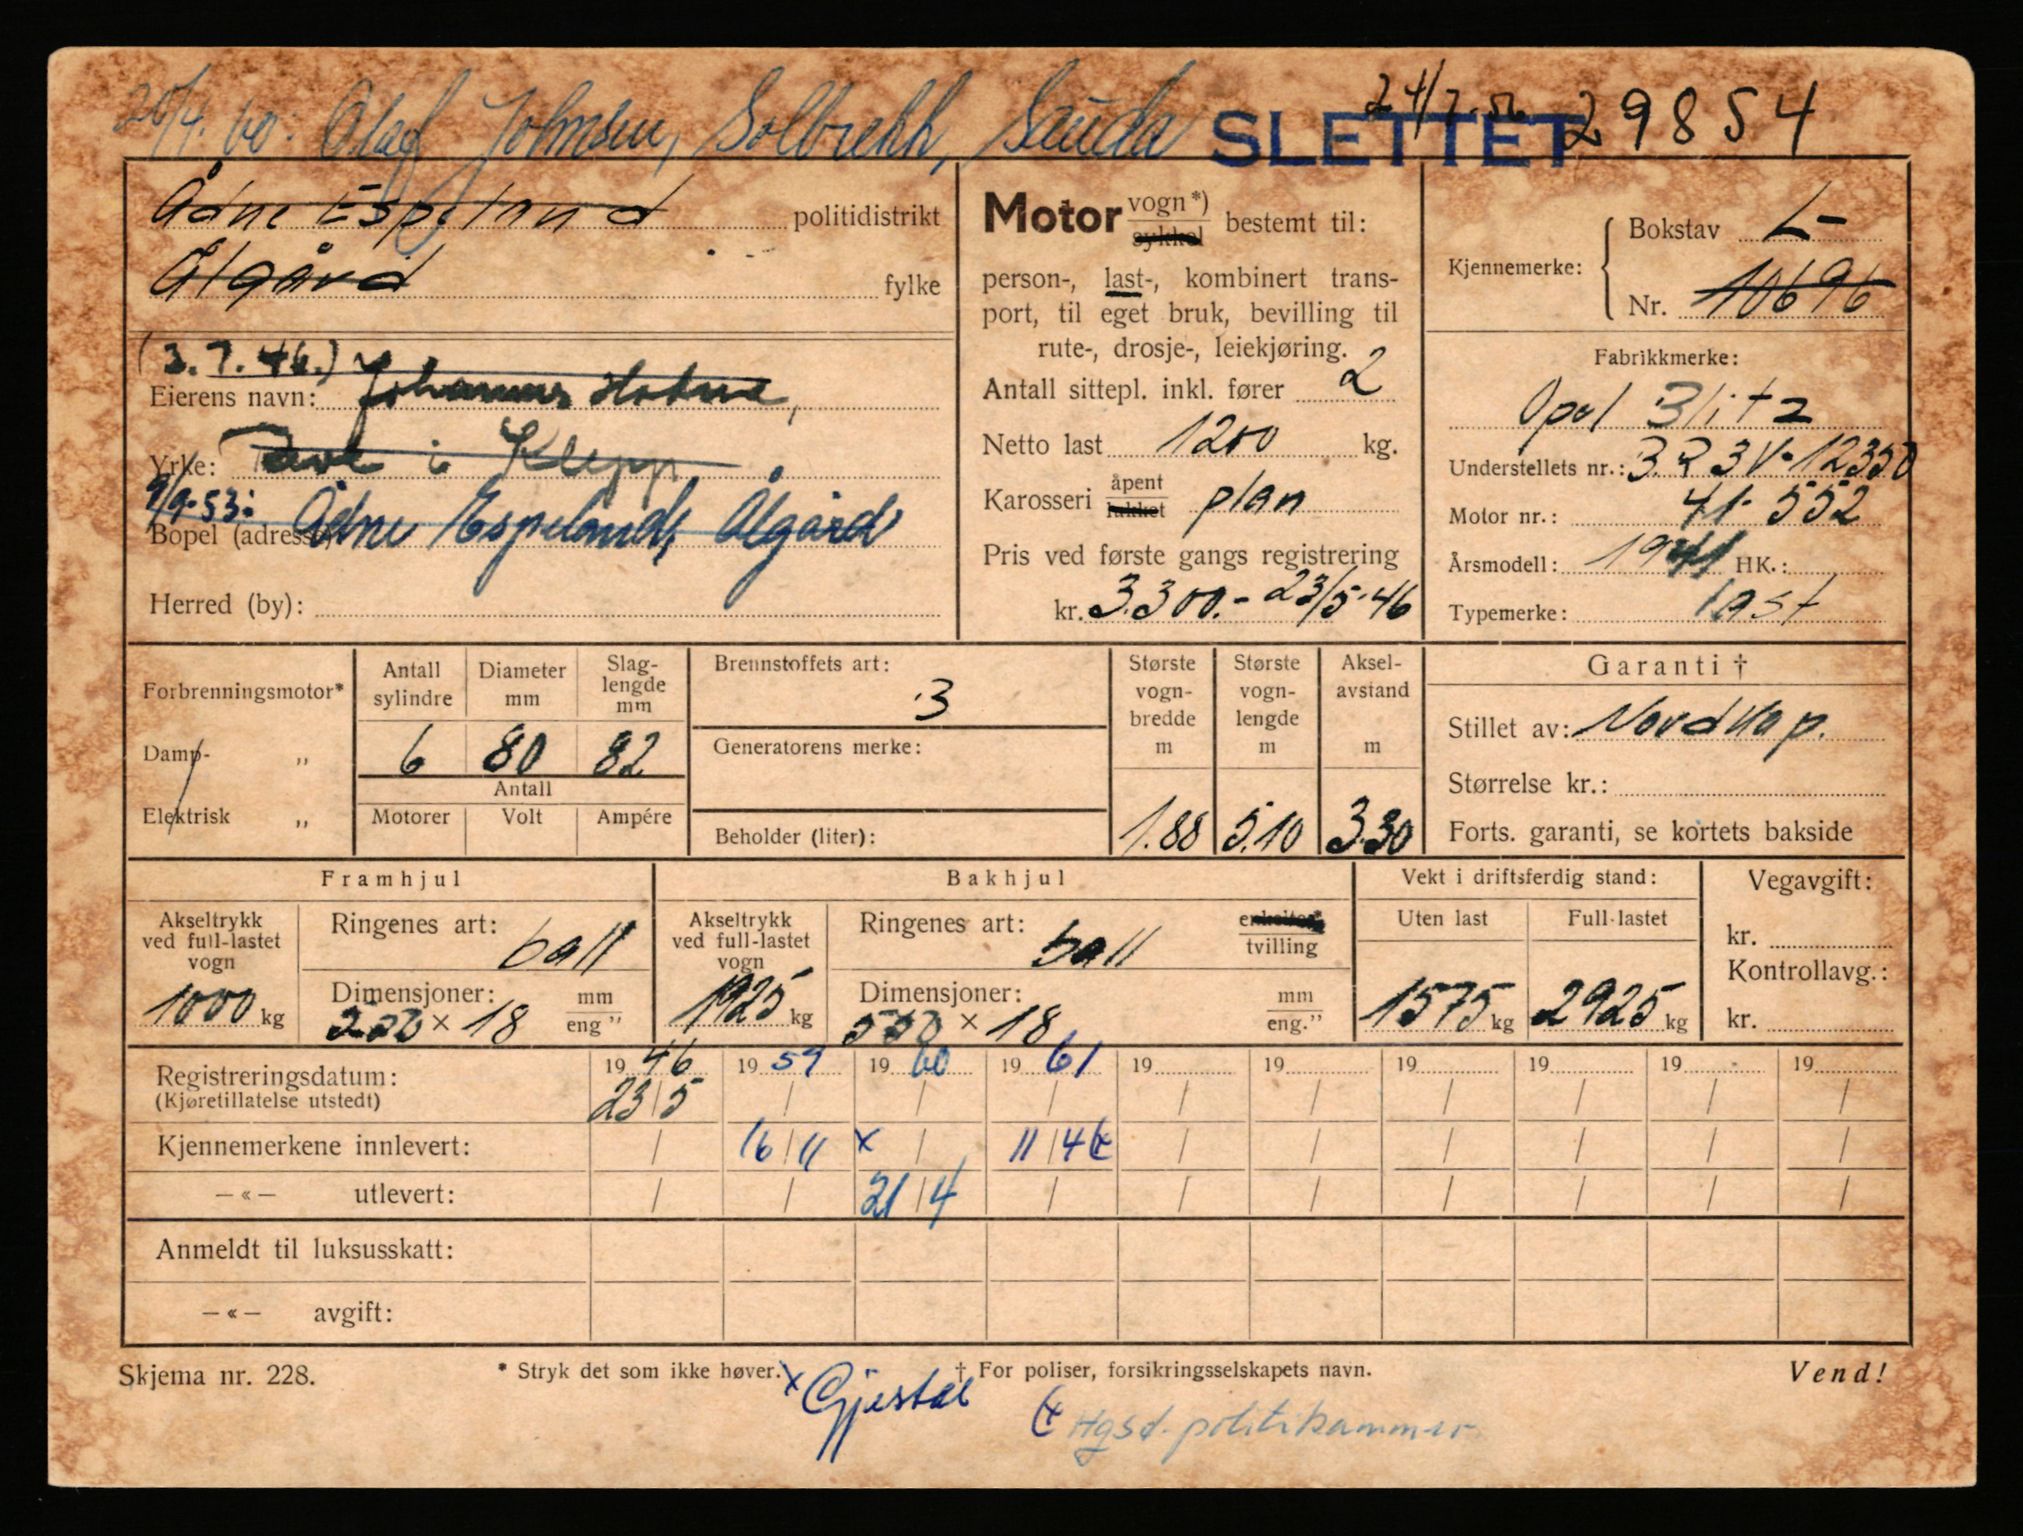 20/4. 60: Olaf Johnsen, Solbrekk, Sauda SLETTET 24/7.56 29854
Ådne Espeland politidistrikt
Ålgård fylke
(3.7.46.)
Eierens navn: Johannes
Yrke: i Klepp
9/9-53: Ådne Espeland, Ålgård
Bopel (adresse)
Herred (by):
Motor vogn*) sykkel bestemt til:
person-, last-, kombinert trans-
port, til eget bruk, bevilling til
rute-, drosje-, leiekjøring.
Antall sittepl. inkl. fører 2
Netto last 1200 kg.
Karosseri åpent lukket plan
Pris ved første gangs registrering
kr. 3.300.- 23/5-46
Kjennemerke: Bokstav L-
Nr. 10696
Fabrikkmerke:
Opel Blitz
Understellets nr.: 3.R3V-12350
Motor nr.: 41-552
Årsmodell: 1941 HK.:
Typemerke: last
Forbrenningsmotor*
Damp- „
Elektrisk „
Antall sylindre 6
Diameter mm 80
Slag- lengde mm 82
Antall
Motorer Volt Ampére
Brennstoffets art: 3
Generatorens merke:
Beholder (liter):
Største vogn- bredde m 1.88
Største vogn- lengde m 5.10
Aksel- avstand m 3.30
Garanti †
Stillet av: Nordkap.
Størrelse kr.:
Forts. garanti, se kortets bakside
Framhjul
Akseltrykk ved full-lastet vogn 1000 kg
Ringenes art: ball
Dimensjoner: 550 × 18 mm eng "
Bakhjul
Akseltrykk ved full-lastet vogn 1925 kg
Ringenes art: ball enkelter* tvilling
Dimensjoner: 550 × 18 mm eng."
Vekt i driftsferdig stand:
Uten last 1575 kg
Full-lastet 2925 kg
Vegavgift:
kr.
Kontrollavg.:
kr.
Registreringsdatum: 1946 1959 1960 1961 19 19 19 19 19 19
(Kjøretillatelse utstedt) 23/5 / / / / / / / / /
Kjennemerkene innlevert: / 16/11 x / 11/4 / / / / / /
—«— utlevert: / / 21/4 / / / / / / /
Anmeldt til luksusskatt:
—«— avgift:
Skjema nr. 228. * Stryk det som ikke høver. † For poliser, forsikringsselskapets navn. Vend!
x Gjestal
Hgsd. politikammer